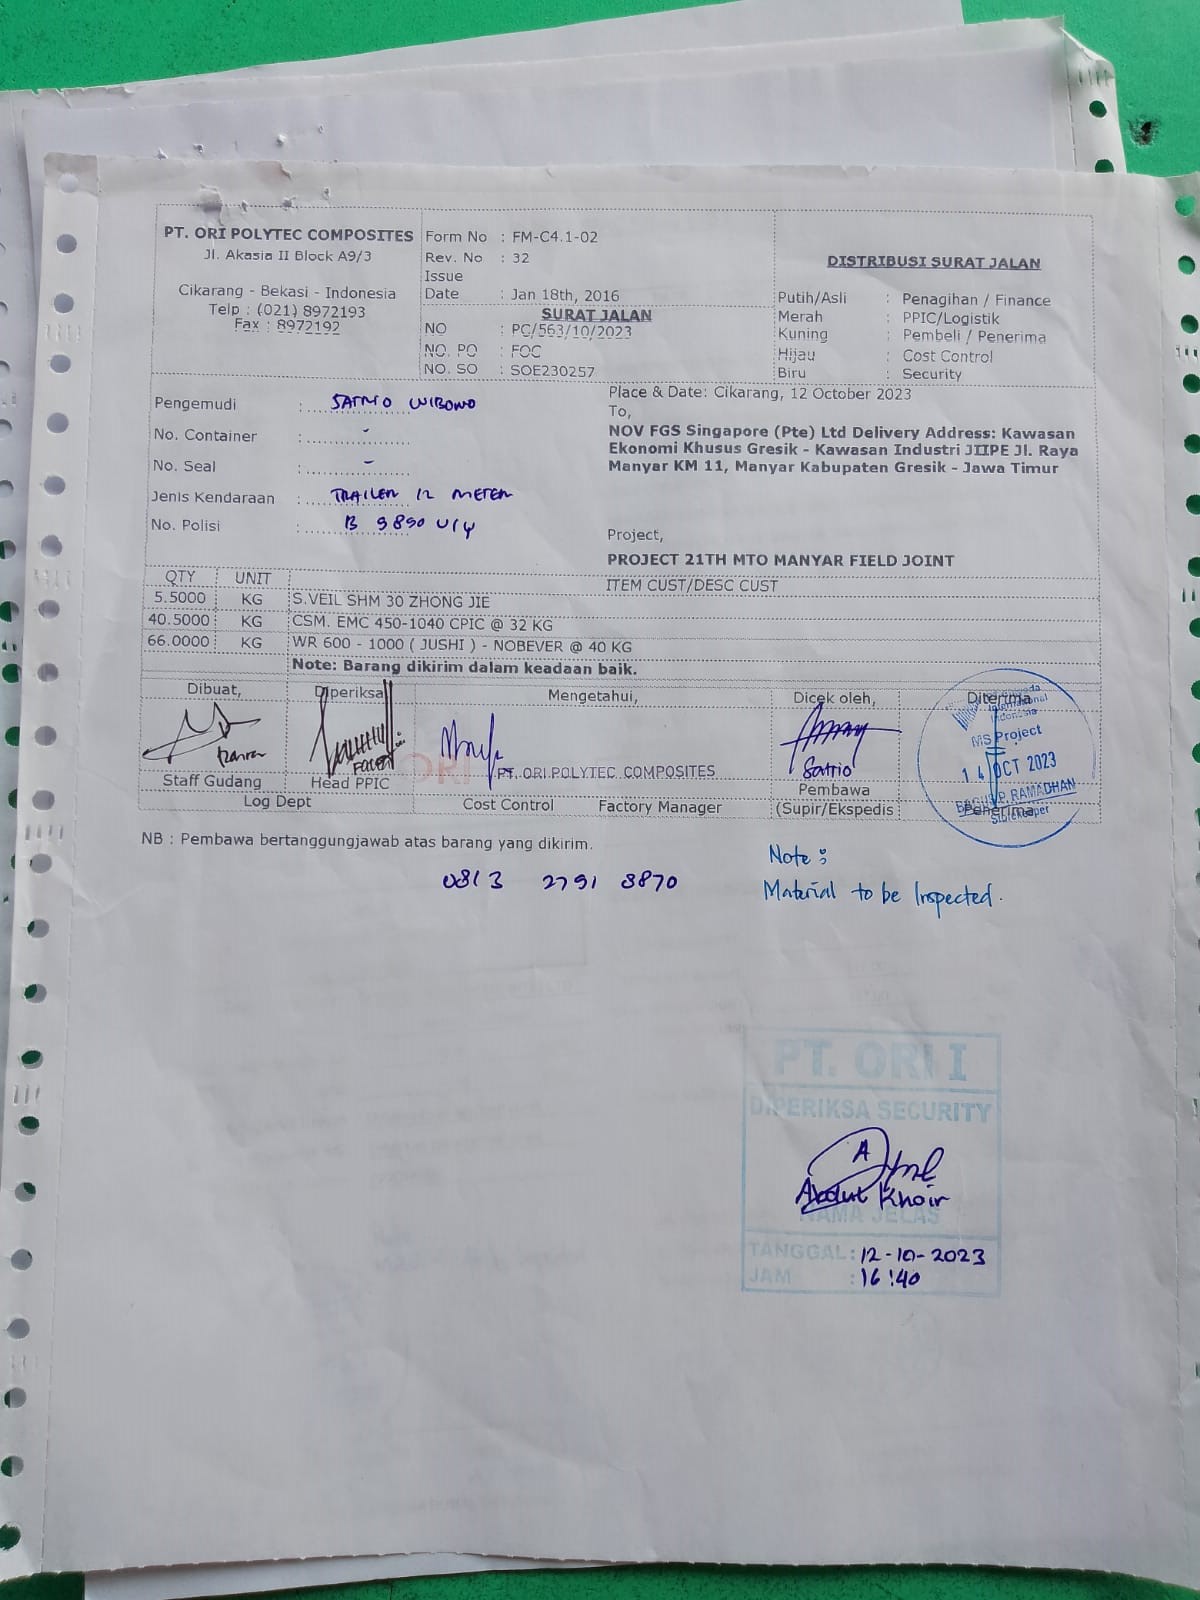 PT. ORI POLYTEC COMPOSITES
Jl. Akasia II Block A9/3
Cikarang - Bekasi - Indonesia
Telp : (021) 8972193
Fax : 8972192
Form No : FM-C4.1-02
Rev. No : 32
Issue
Date : Jan 18th, 2016
SURAT JALAN
NO : PC/563/10/2023
NO. PO : FOC
NO. SO : SOE230257
DISTRIBUSI SURAT JALAN
Putih/Asli : Penagihan / Finance
Merah : PPIC/Logistik
Kuning : Pembeli / Penerima
Hijau : Cost Control
Biru : Security
Pengemudi : SATRIO WIBOWO
No. Container : -
No. Seal : -
Jenis Kendaraan : TRAILER 12 METER
No. Polisi : B 9890 UIY
Place & Date: Cikarang, 12 October 2023
To,
NOV FGS Singapore (Pte) Ltd Delivery Address: Kawasan
Ekonomi Khusus Gresik - Kawasan Industri JIIPE Jl. Raya
Manyar KM 11, Manyar Kabupaten Gresik - Jawa Timur
Project,
PROJECT 21TH MTO MANYAR FIELD JOINT
QTY UNIT ITEM CUST/DESC CUST
5.5000 KG S.VEIL SHM 30 ZHONG JIE
40.5000 KG CSM. EMC 450-1040 CPIC @ 32 KG
66.0000 KG WR 600 - 1000 ( JUSHI ) - NOBEVER @ 40 KG
Note: Barang dikirim dalam keadaan baik.
Dibuat, Diperiksa Mengetahui, Dicek oleh, Diterima
Internasional
Indonesia
MS Project
14 OCT 2023
BAGUS P. RAMADHAN
Storekeeper
Satrio
ORI
PT. ORI POLYTEC COMPOSITES
Staff Gudang Head PPIC Pembawa
Log Dept Cost Control Factory Manager (Supir/Ekspedis Penerima
NB : Pembawa bertanggungjawab atas barang yang dikirim.
0813 2791 8870
Note :
Material to be Inspected.
PT. ORI I
DIPERIKSA SECURITY
Abdul Khoir
NAMA JELAS
TANGGAL : 12-10-2023
JAM : 16:40